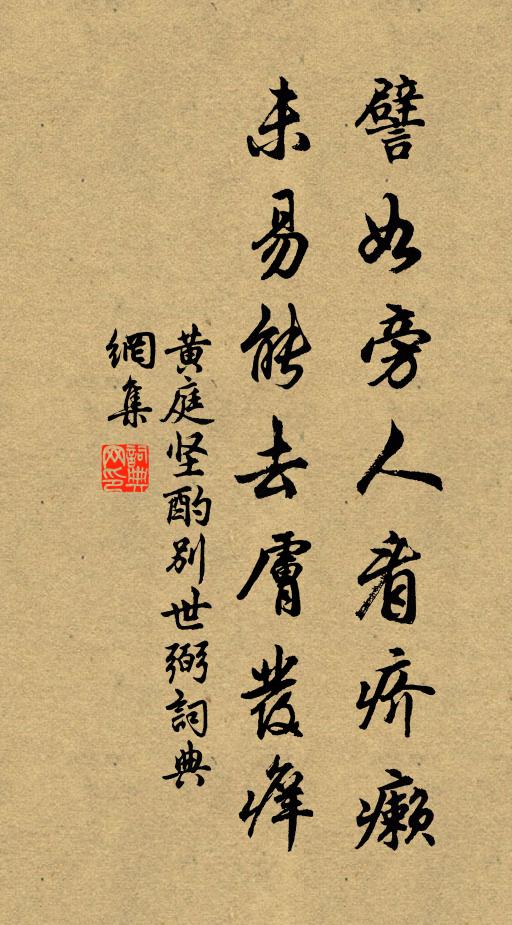 譬如旁人看疥癩
未易能去膚發癢
黄庭坚酌别世弼詞典
網集
詞典网印